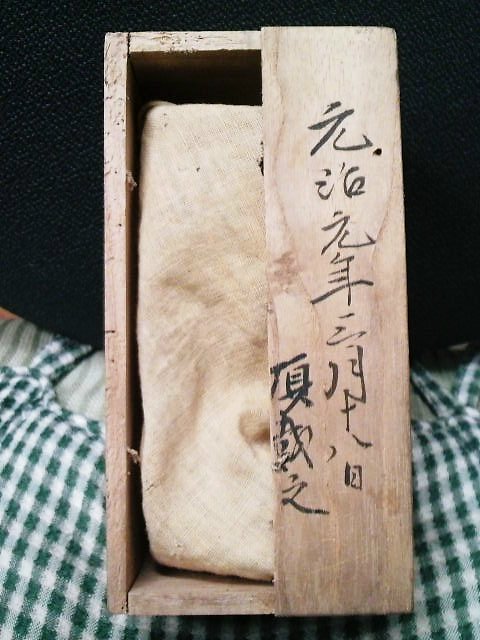 元治元年三月十八日
頂戴之